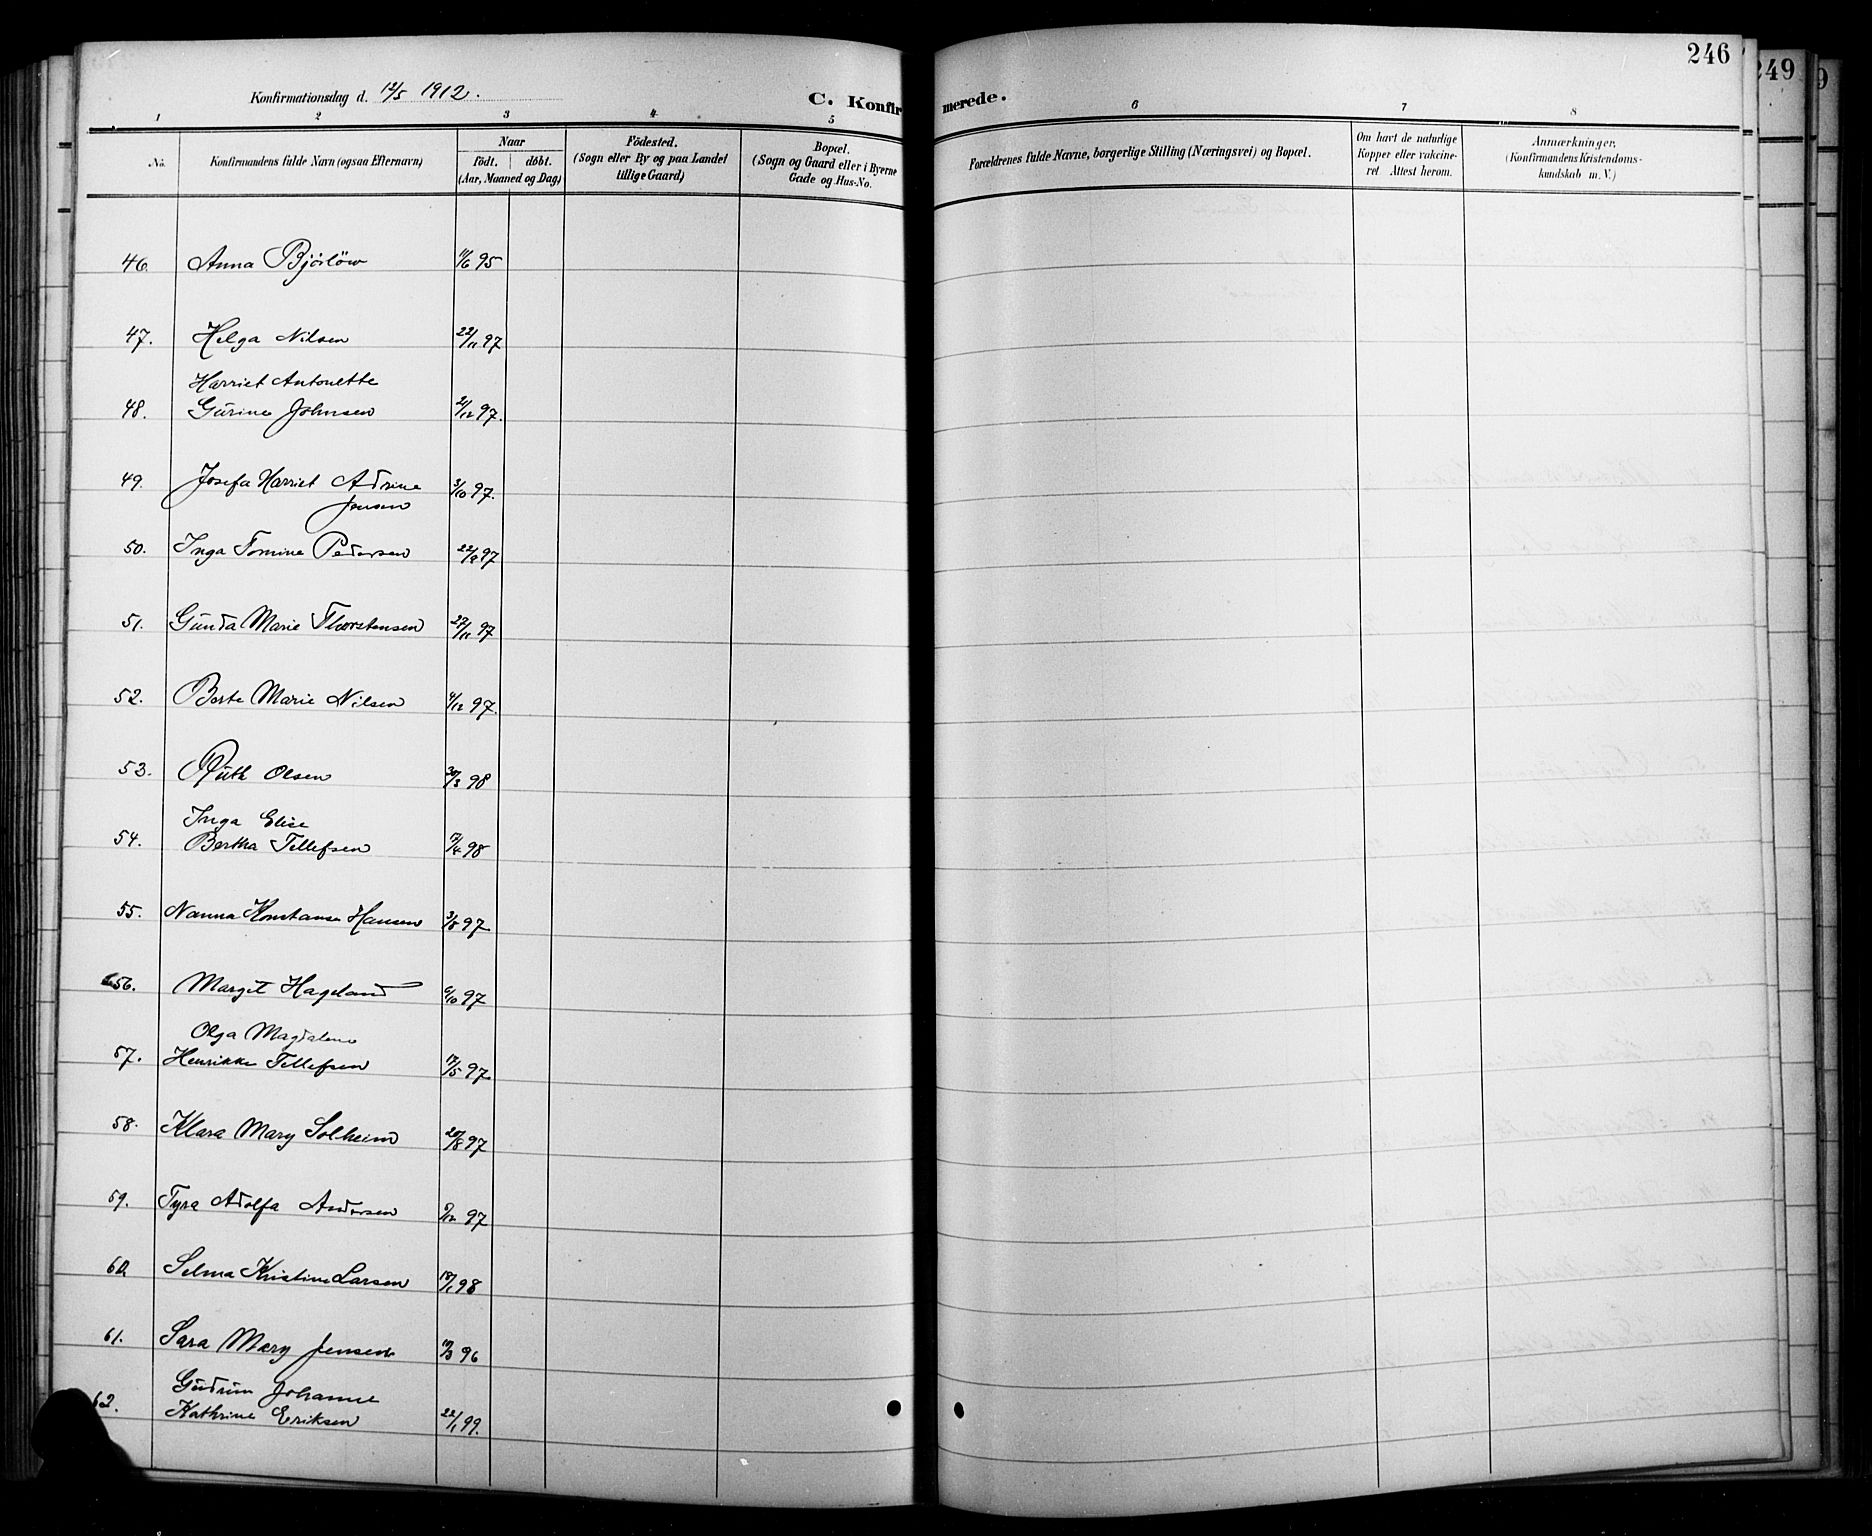 246
249
9
Konfirmationsdag d. 12/5 1912.
C. Konfirmerede.
1 2 3 4 5 6 7 8
No.
Konfirmandens fulde Navn (ogsaa Efternavn)
Naar
födt. döbt.
(Aar, Maaned og Dag)
Födested.
(Sogn eller By og paa Landet
tillige Gaard)
Bopæl.
(Sogn og Gaard eller i Byerne
Gade og Hus-No.
Forældrenes fulde Navne, borgerlige Stilling (Næringsvei) og Bopæl.
Om havt de naturlige
Kopper eller vakcine-
ret Attest herom.
Anmærkninger,
(Konfirmandens Kristendoms-
kundskab m. V.)
46. Anna Bjorlöw 11/6 95
47. Helga Nilsen 22/11 97
Harriet Antonette
48. Gurine Johnsen 2/12 97.
49. Josefa Harriet Adrine 3/10 97.
Jensen
50. Inga Tomine Pedersen 22/9 97
51. Gunda Marie Thorstensen 22/11 97
52. Berte Marie Nilsen 4/12 97.
53. Ruth Olsen 30/3 98
Inga Elise
54. Bertha Tellefsen 7/4 98
55. Nanna Konstanse Hansen 3/8 97
56. Margit Hageland 6/10 97
Olga Magdalene
57. Henrikke Tellefsen 17/5 97
58. Klara Mary Solheim 20/8 97
59. Tyra Adolfa Andersen 9/12 97
60 Selma Kristine Larsen 18/1 98
61. Sara Mary Jensen 19/3 96
Gudrun Johanne
62. Kathrine Eriksen 22/1 99.